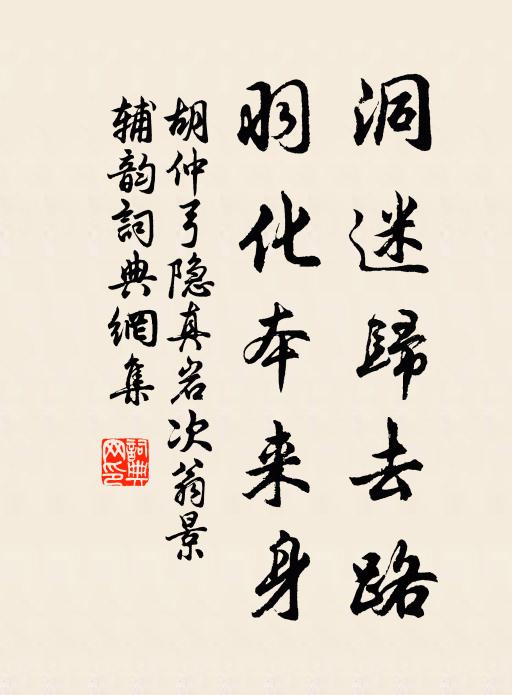 洞迷歸去路
羽化本来身
胡仲弓隐真岩次翁景
辅韵詞典網集
詞典網印